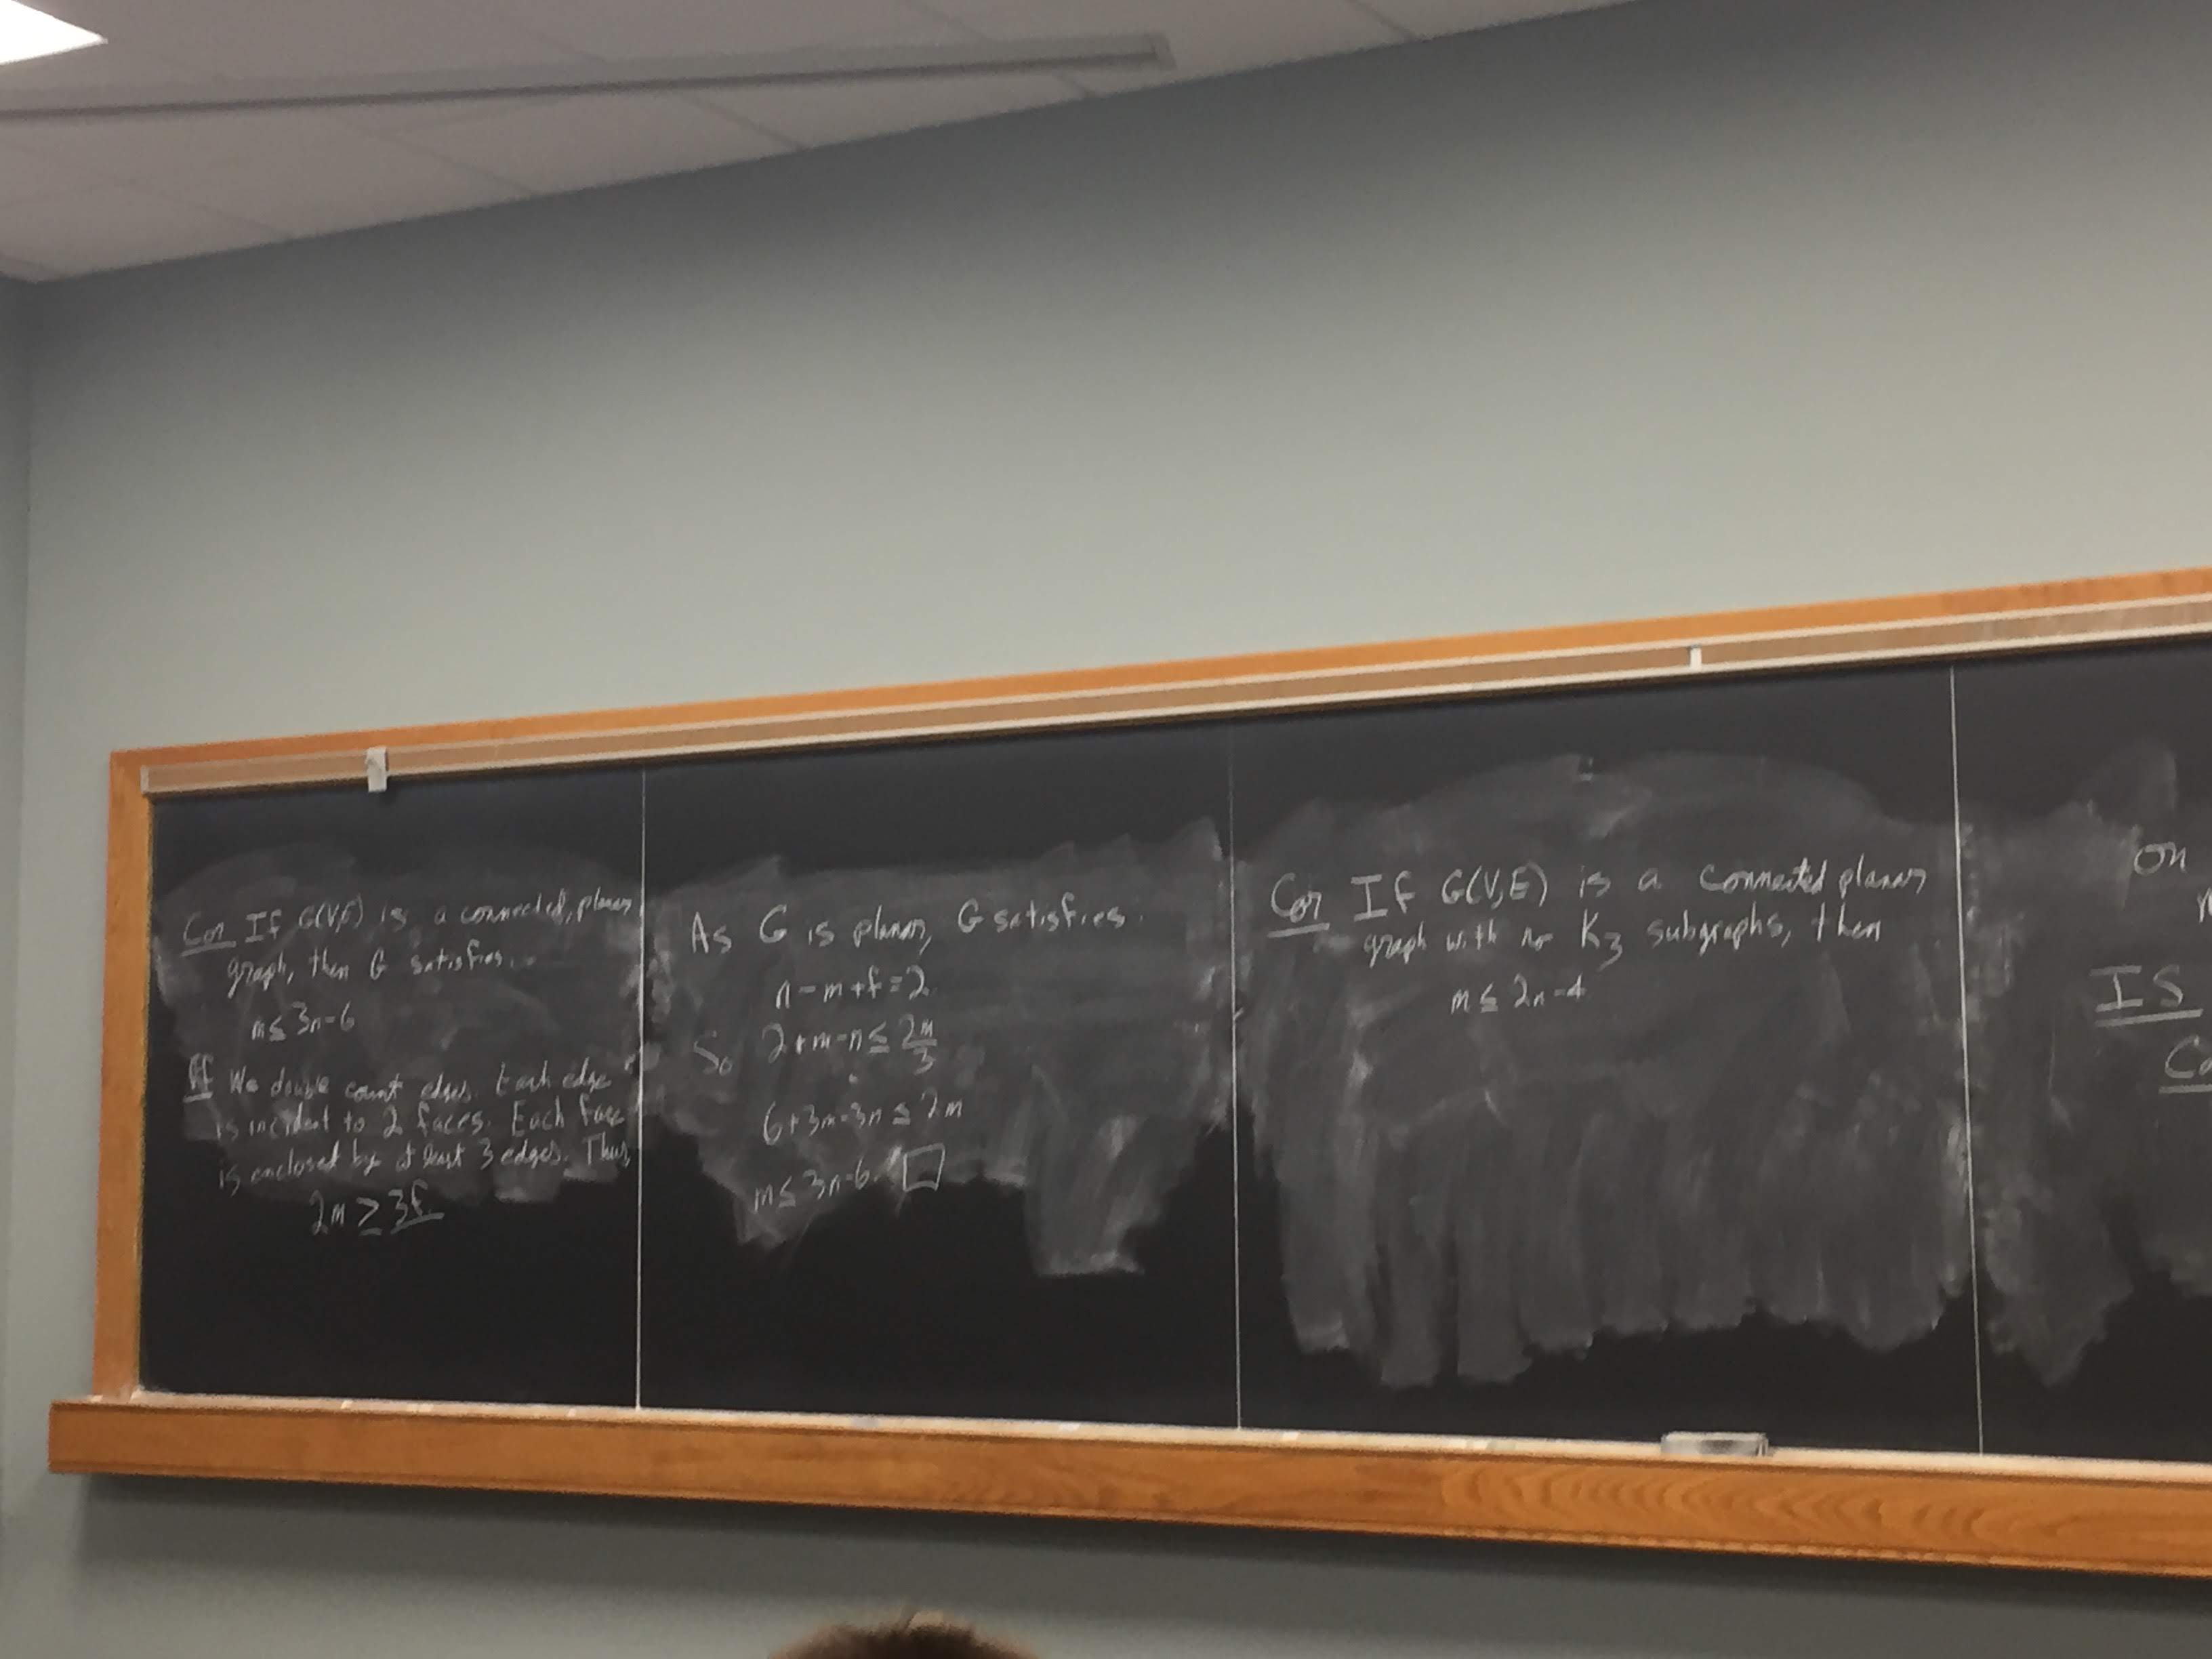 Cor If G(V,E) is a connected, planar
graph, then G satisfies..
m ≤ 3n-6
Pf We double count edges. Each edge
is incident to 2 faces. Each face
is enclosed by at least 3 edges. Thus,
2m ≥ 3f.
As G is planar, G satisfies.
n-m+f=2.
So 2+m-n ≤ 2m/3
6+3m-3n ≤ 2m
m ≤ 3n-6. □
Cor If G(V,E) is a connected planar
graph with no K3 subgraphs, then
m ≤ 2n-4
on
IS
Co